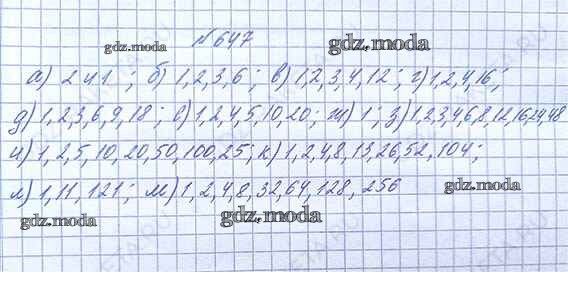 №647
gdz.moda
gdz.moda
а) 2 и 1 ; б) 1,2,3,6 ; в) 1,2,3,4,12 ; г) 1,2,4,16 ;
д) 1,2,3,6,9,18 ; е) 1,2,4,5,10,20 ; ж) 1 ; з) 1,2,3,4,6,8,12,16,24,48
и) 1,2,5,10,20,50,100,25 ; к) 1,2,4,8,13,26,52,104 ;
л) 1,11,121 ; м) 1,2,4,8,32,64,128,256
gdz.moda
gdz.moda
gdz.moda